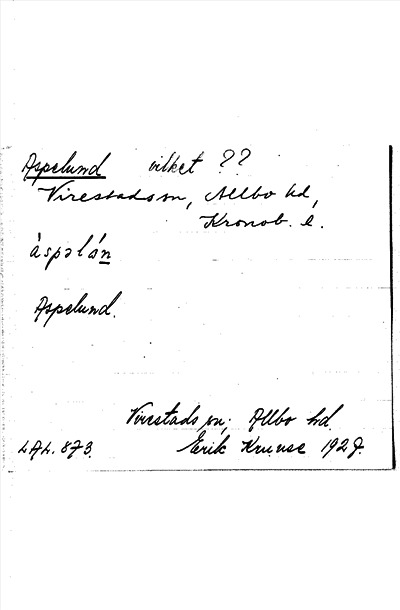 Aspelund vilket ??
Virestads sn, Allbo hd,
Kronob. l.
àspəlán
Aspelund.
Virestads sn; Allbo hd.
LAL. 873. Erik Kruuse 1927.